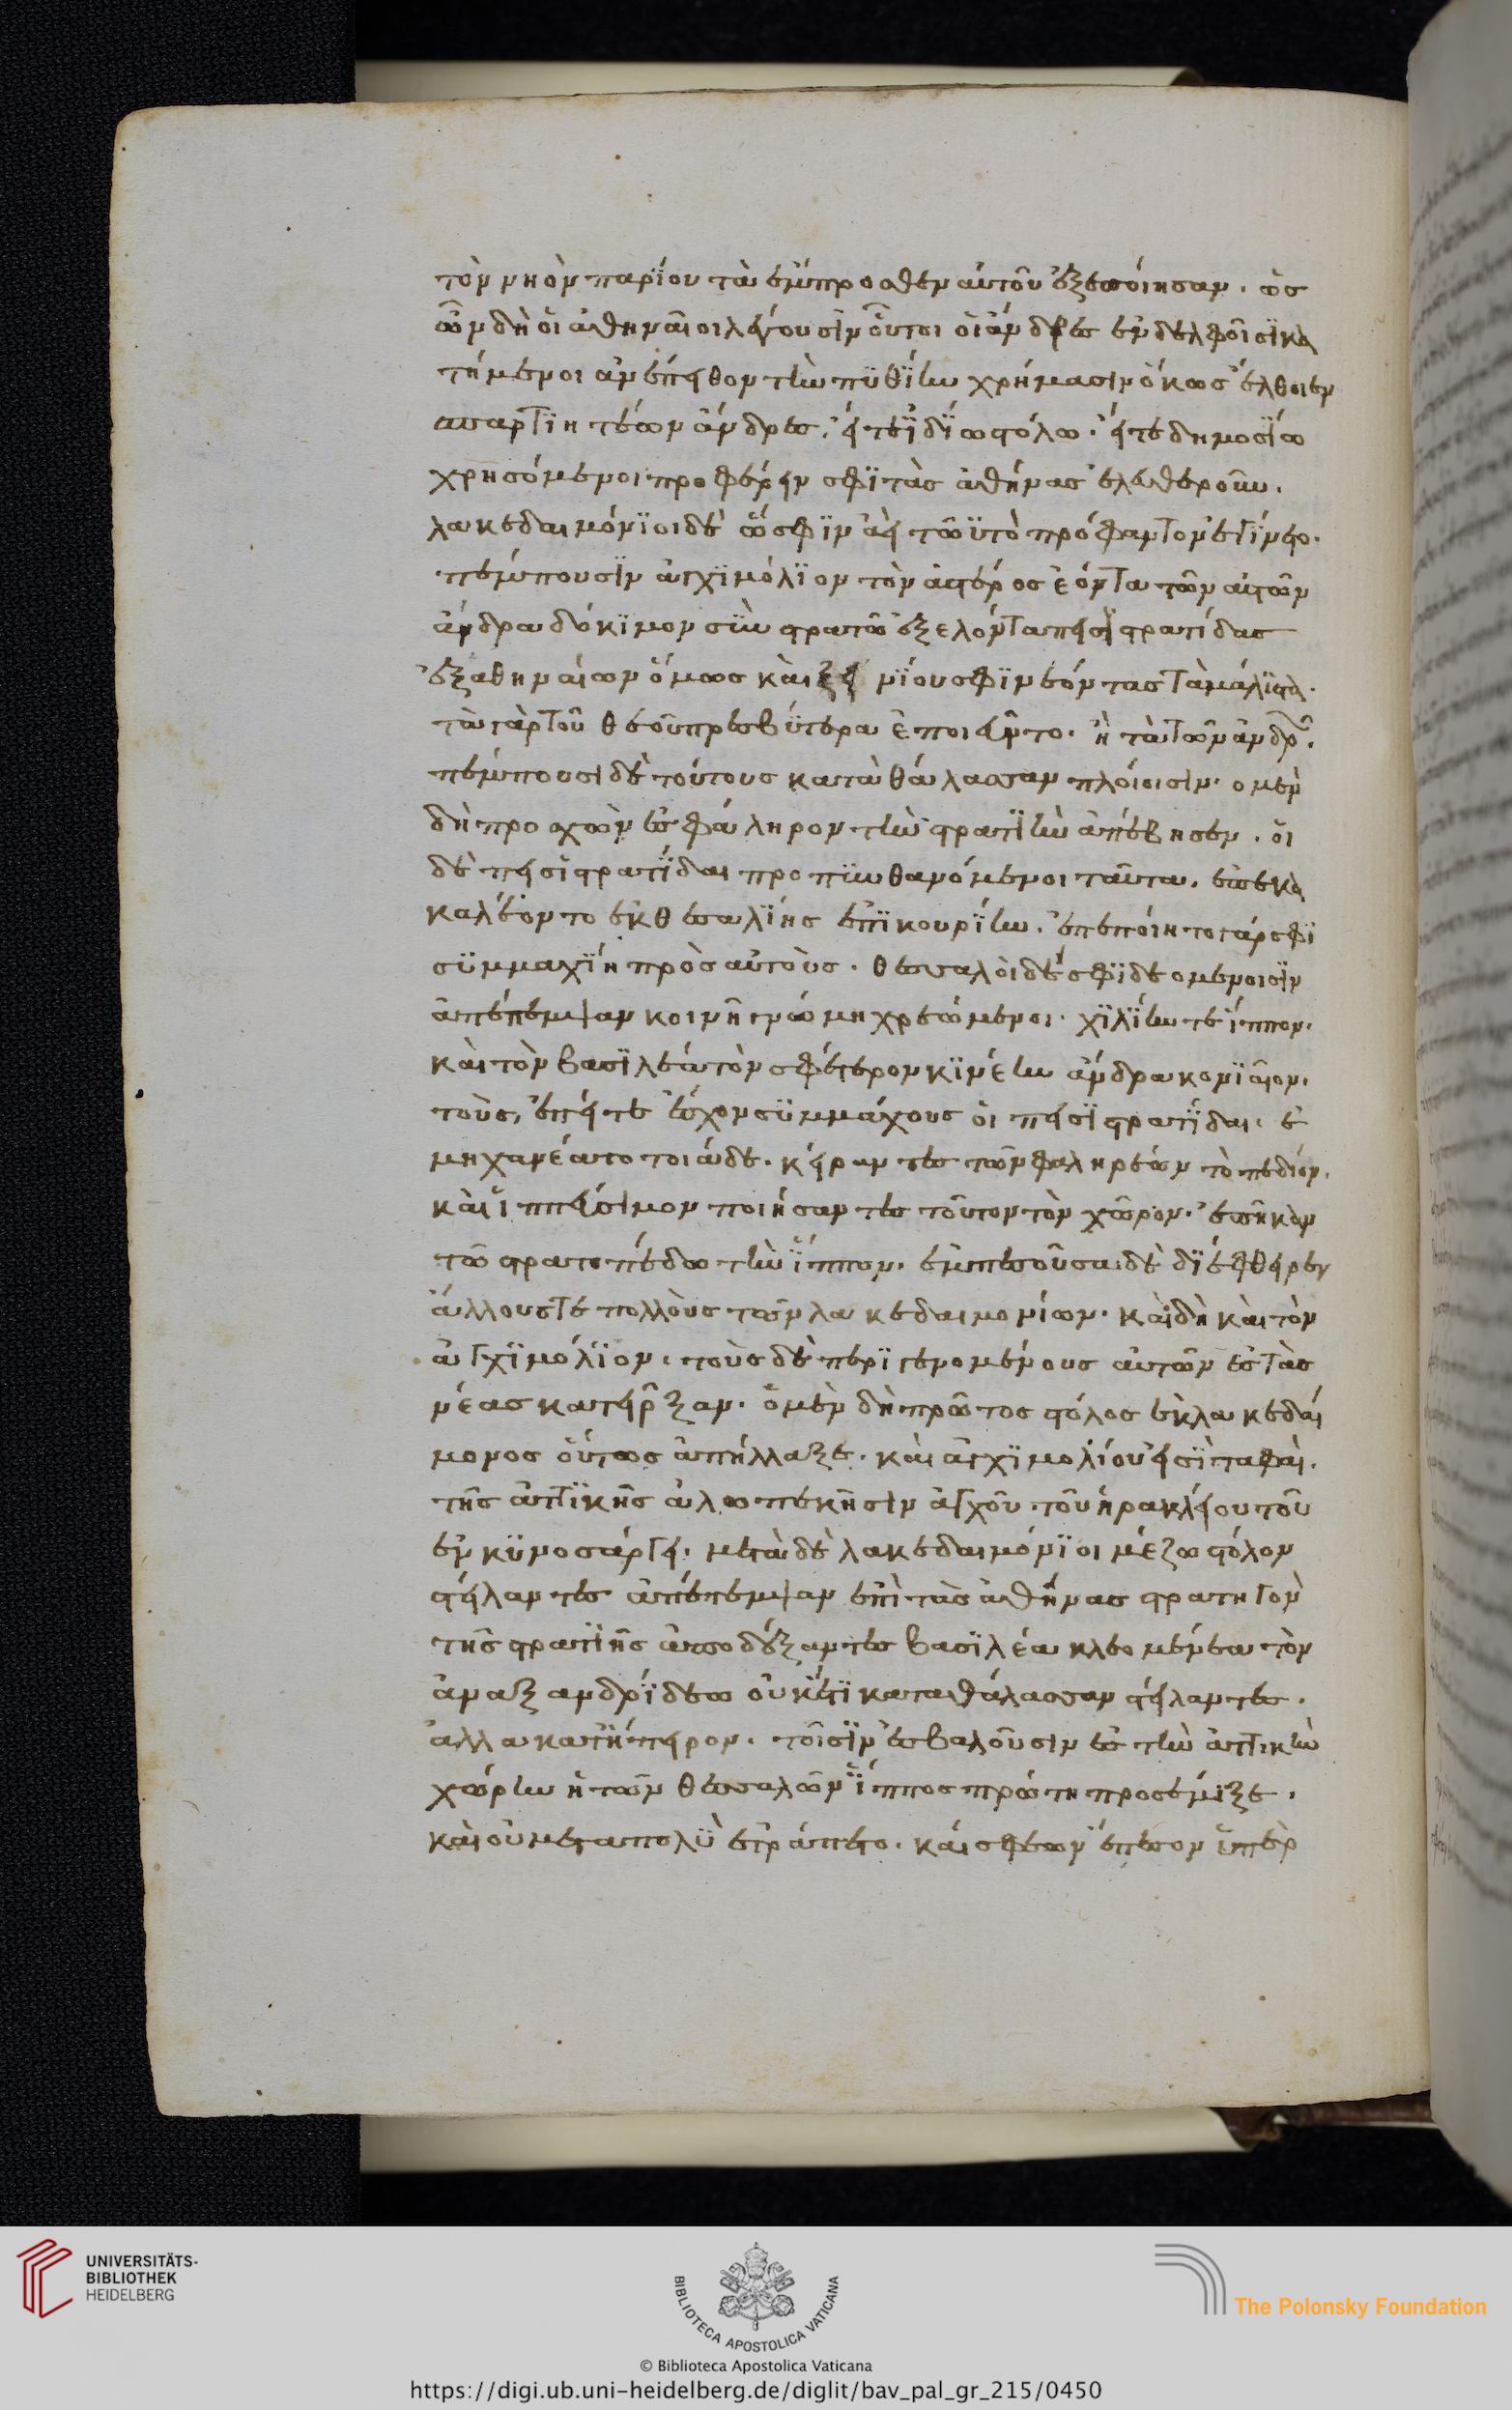 τὸν νηὸν παρΐου τὰ ἔμπροσθεν αὐτοῦ ἐξεποίησαν. ὡς
ὦν δὴ ὁι ἀθηναῖοι λέγουσϊν οὗτοι ὁι ἄνδρες ἐν δελφοῖσϊ κα
τήμενοι ἀνέπειθον τὴν πϋθΐην χρήμασϊν ὅκως ἔλθοιεν
σπαρτϊητέων ἄνδρες, εἴτε ϊδΐω στόλω. εἴτε δημοσΐω
χρησόμενοι προφέρειν σφϊ τὰς ἀθήνας ἐλευθεροῦν.
λακεδαιμόνϊοι δὲ ὥς σφϊν ἀεὶ τωϋτὸ πρόφαντον ἐγΐνετο.
πέμπουσϊν ἀγχϊμόλϊον τὸν ἀστέρος ἐόντα τῶν ἀστῶν
ἄνδρα δόκϊμον σϋν στρατῶ ἐξελόντα πεισϊστρατίδας
ἐξ ἀθηναίων ὅμως καὶ ξεινΐους σφϊν ἐόντας τὰ μάλϊστα.
τὰ γὰρ τοῦ θεοῦ πρεσβϋτερα ἐποιεῦντο. ἢ τὰ τῶν ἀνδρῶν.
πέμπουσϊ δὲ τούτους κατὰ θάλασσαν πλοίοισϊν. ο μὲν
δὴ προσχὼν ἐς φάληρον τὴν στρατϊὴν ἀπέβησεν. ὁι
δὲ πεισϊστρατΐδαι προπϋνθανόμενοι ταῦτα. ἐπεκα
καλέοντο ἐκ θεσαλΐης ἐπϊκουρΐην. ἐπεποίητο γάρ σφϊ
σϋμμαχΐη πρὸς αὐτούς. θεσσαλοὶ δέ σφϊ δεομένοισϊν
ἀπέπεμψαν κοινῆ γνώμη χρεώμενοι. χϊλΐην τε ἵππον.
καὶ τὸν βασϊλέα τὸν σφέτερον κϊνέην ἄνδρα κονϊαῖον.
τοὺς, ἐπείτε ἔσχον σϋμμάχους ὁι πεισϊστρατΐδαι. ἐ
μηχανέατο τοιάδε. κείραντες τῶν φαληρέων τὸ πεδίον.
καὶ ἱππάσϊμον ποιήσαντες τοῦτον τὸν χῶρον. ἐπῆκαν
τῶ στρατοπέδω τὴν ἵππον. ἐμπεσοῦσα δὲ δϊέφθειρεν
ἄλλους τε πολλοὺς τῶν λακεδαιμονίων. καὶ δὴ καὶ τὸν
ἀγχϊμόλϊον. τοὺς δὲ περϊγενομένους αὐτῶν ἐς τὰς
νέας κατεῖρξαν. ὁ μὲν δὴ πρῶτος στόλος ἐκ λακεδαί
μονος οὕτως ἀπήλλαξε. καὶ ἀγχϊμολίου εἰσϊ ταφαὶ.
τῆς ἀττϊκῆς ἀλωπεκῆσϊν ἀγχοῦ τοῦ ἡρακλείου τοῦ
ἐν κϋνοσάργει. μετὰ δὲ λακεδαιμόνϊοι μέζω στόλον
στείλαντες ἀπέπεμψαν ἐπὶ τὰς ἀθήνας στρατηγὸν
τῆς στρατϊῆς ἀποδέξαντες βασϊλέα κλεομένεα τὸν
ἀναξανδρΐδεω οὐκέτϊ κατα θάλασσαν στείλαντες.
ἀλλα κατ' ἤπειρον. τοῖσϊν ἐσβαλοῦσϊν ἐς τὴν ἀττϊκὴν
χώρην ἡ τῶν θεσσαλῶν ἵππος πρώτη προσέμϊξε.
καὶ οὐ μετα πολϋ ἐτράπετο. καί σφεων ἔπεσον ὑπὲρ
UNIVERSITÄTS-
BIBLIOTHEK
HEIDELBERG
BIBLIOTECA APOSTOLICA VATICANA
The Polonsky Foundation
© Biblioteca Apostolica Vaticana
https://digi.ub.uni-heidelberg.de/diglit/bav_pal_gr_215/0450